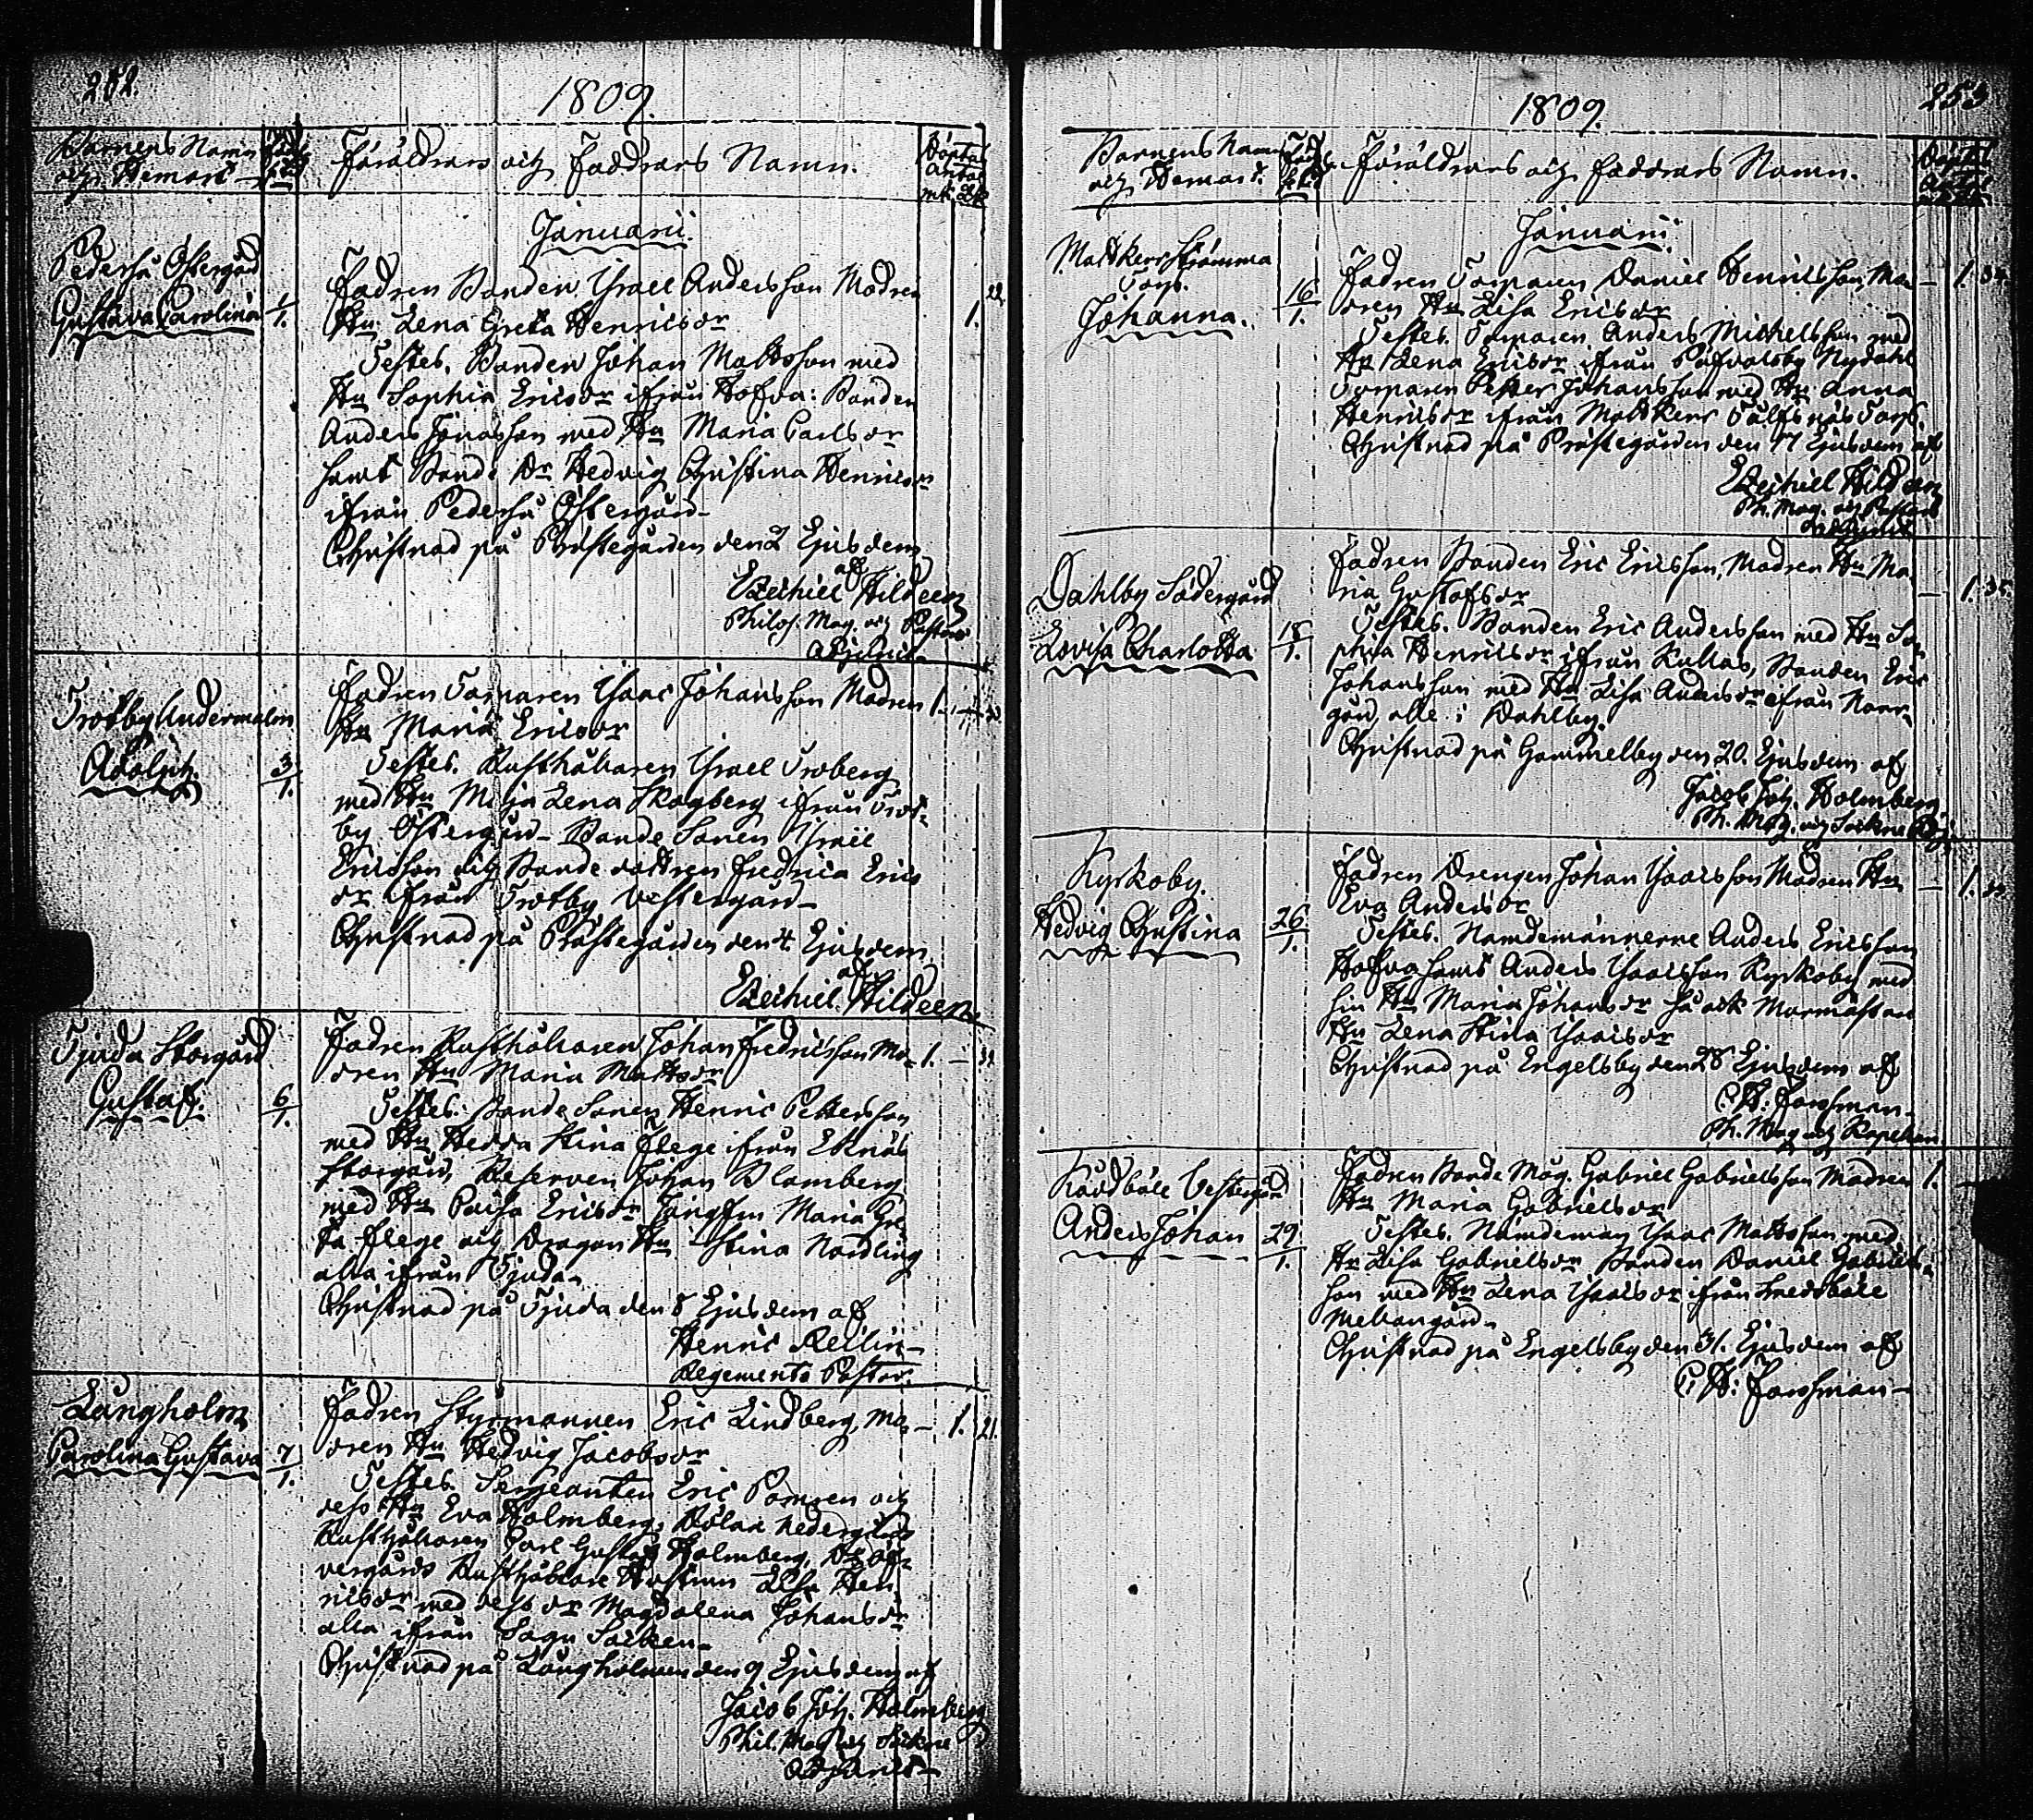 252.
1809.
Barnens Namn
och Hemort
Föräldrars och Faddrars Namn.
Januarii.
Pederså Östergård
Gustava Carolina
1/1.
Fadren Bonden Israel Andersson Modren
Hu Lena Greta Henricsdr
1. 22
Testes. Bonden Johan Mattsson med
Hu Sophia Ericsdr ifrån Hofva: Bonden
Anders Jonasson med Hu Maria Carlsdr
samt Bonde Dr Hedvig Christina Henricsdr
ifrån Pederså Östergård
Christnad på Prästegården den 2 Ejusdem
af
Ezechiel Hildeen
Philos. Mag. och Pastors
Adjunct.
Trotby Andermalm
Adolph.
3/1.
Fadren Torparen Isaac Johansson Modren
Hu Maria Ericsdr
1.
Testes. Rusthållaren Israel Troberg
med Hu Maja Lena Skogberg ifrån Trot-
by Östergård Bonde Sonen Israel
Ericsson och Bonde dottren Fredrica Erics
dr ifrån Trotby Vestergård
Christnad på Prästegården den 4 Ejusdem
af
Ezechiel Hildeen
Tjuda Storgård
Gustaf.
6/1.
Fadren Rusthållaren Johan Fredricsson Mo-
dren Hu Maria Mattsdr
1. —
Testes. Bonde Sonen Henric Pettersson
med Hu Hedda Stina Flege ifrån Eknäs
Storgård, Reserven Johan Blomberg
med Hu Caisa Ericsdr Jungfru Maria Gre
ta Flege och Dragon Hu Stina Nordling
alla ifrån Tjuda
Christnad på Tjuda den 8 Ejusdem af
Henric Rellin
Regements Pastor.
Långholm
Carolina Gustava
7/1.
Fadren Styrmannen Eric Lindberg, Mo-
dren Hu Hedvig Jacobsdr
— 1. 21.
Testes. Sergeanten Eric Pomren och
dess Hu Eva Holmberg, Rölax Nedergårds
Rusthållaren Carl Gustaf Holmberg, Do Öf-
vergårds Rusthållare Hustrun Lisa Hen
ricsdr med dess dr Magdalena Johansdr
alla ifrån Sagu Socken
Christnad på Långholmen den 9 Ejusdem af
Jacob Joh. Holmberg
Phil. Mag. och Sockne
Adjunct
253
1809.
Barnens Namn
och Hemort.
Föräldrars och Faddrars Namn.
Januarii
Mattkerr Strömma
Torp.
Johanna.
16/1.
Fadren Torparen Daniel Henricsson, Mo-
dren Hu Lisa Ericsdr
— 1. 34
Testes. Torparen Anders Michelsson med
Hu Lena Ericsdr ifrån Pafvalsby Nydahl
Torparen Petter Johansson med Hu Anna
Henricsdr ifrån Mattkerr Torp.
Christnad på Prästegården den 17 Ejusdem af
Ezechiel Hildeen
Ph. Mag. och Pastors
Adjunct
Dahlby Södergård
Lovisa Charlotta
18/1.
Fadren Bonden Eric Ericsson, Modren Hu Ma-
ria Gustafsdr
— 1. 35.
Testes. Bonden Eric Andersson med Hu So-
phia Henricsdr ifrån Kullas, Bonden Eric
Johansson med Hu Lisa Andersdr ifrån Norr-
gård, alle i Dahlby.
Christnad på Gammelby den 20. Ejusdem af
Jacob Joh. Holmberg
Ph. Mag. och Sockne Adj.
Kyrkoby.
Hedvig Christina
26/1.
Fadren Drengen Johan Isaacsson Modren Hu
Eva Andersdr
— 1.
Testes. Nämdemännerne Anders Ericsson
Hofva samt Anders Isaacsson Kyrkoby med
sin Hu Maria Johansdr så ock Murmästare
Hu Lena Stina Isaacsdr
Christnad på Engelsby den 28 Ejusdem af
C. H: Forsman
Ph. Mag och Kapellan
Råddböle Vestergård
Anders Johan
29/1.
Fadren Bonde Måg. Gabriel Gabrielsson Modren
Hu Maria Gabrielsdr
1. —
Testes. Nämdeman Isaac Mattsson med
Hu Lisa Gabrielsdr Bonden Daniel Gabriels-
son med Hu Lena Isaacsdr ifrån Smedsböle
Mellangård
Christnad på Engelsby den 31. Ejusdem af
C. H: Forsman